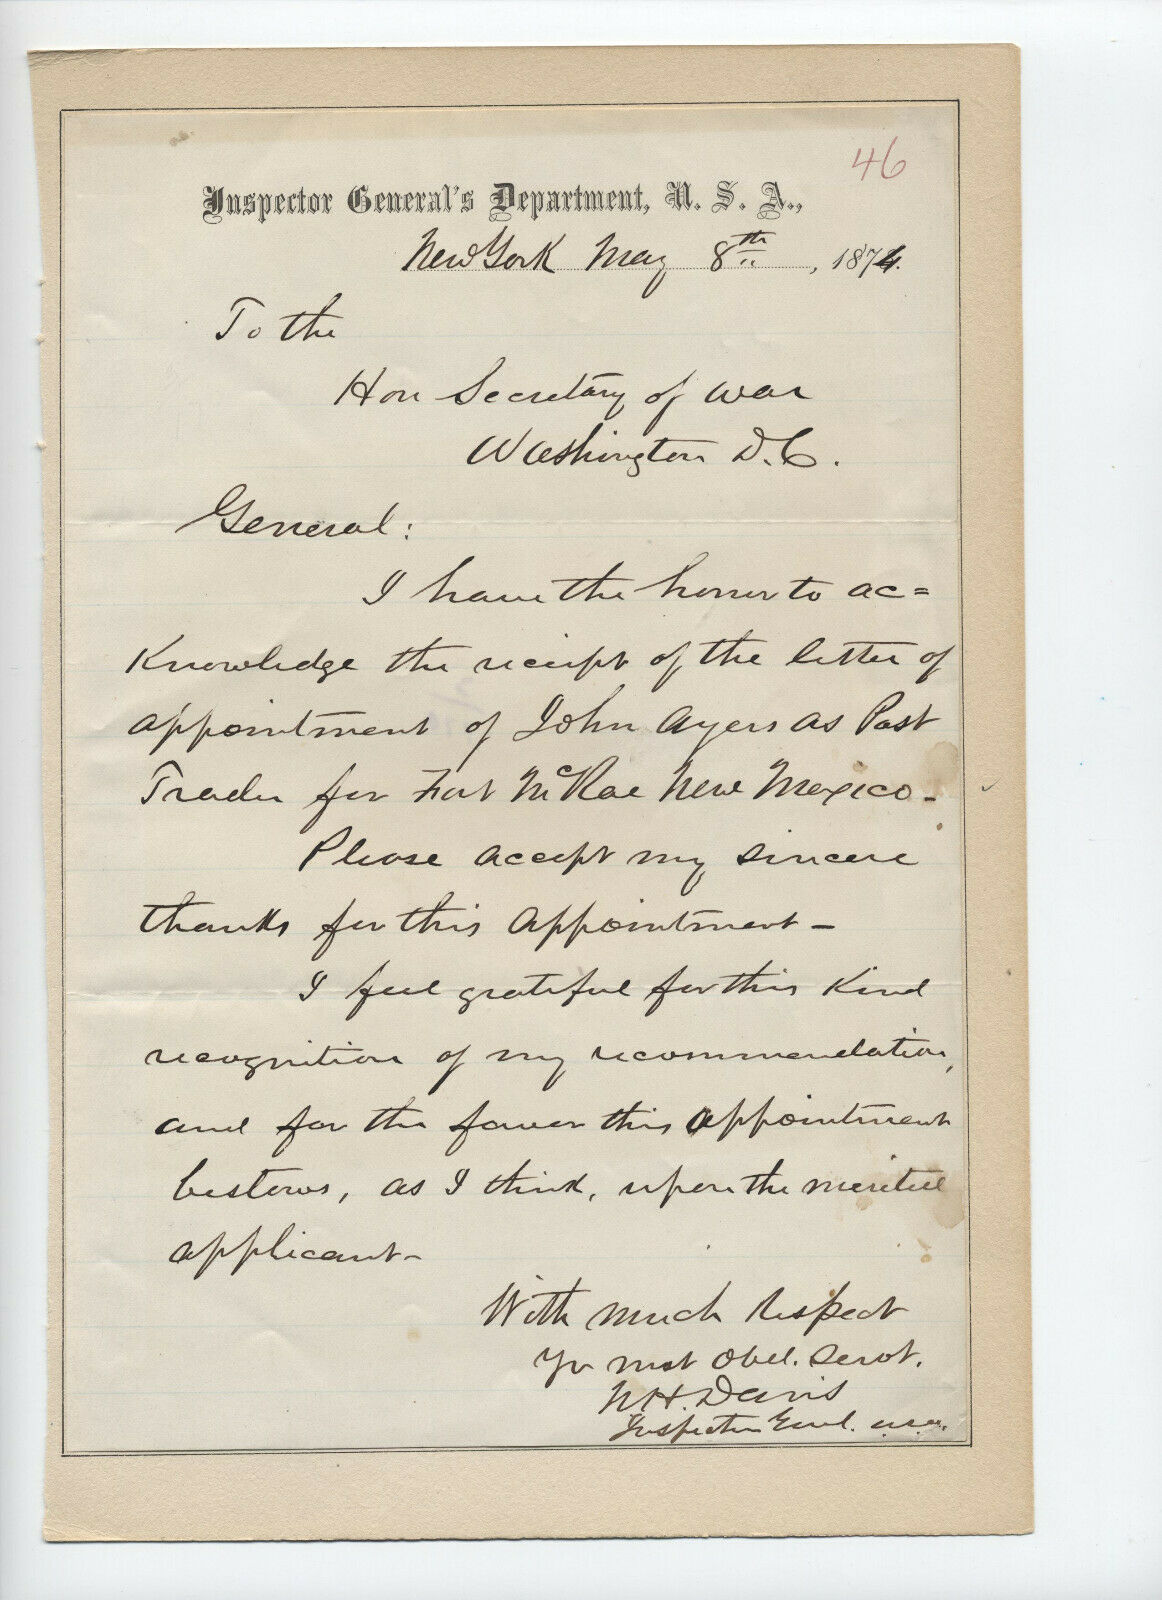 46
Inspector General's Department, U. S. A.,
New York May 8th, 1874.
To the
Hon Secretary of War
Washington D.C.
General:
I have the honor to ac=
knowledge the receipt of the letter of
appointment of John Ayers as Post
Trader for Fort McRae New Mexico-
Please accept my sincere
thanks for this appointment-
I feel grateful for this kind
recognition of my recommendation,
and for the favor this appointment
bestows, as I think, upon the merited
applicant-
With much respect
Yr most Obed. Servt.
N.H. Davis
Inspector Genl. U.S.A.